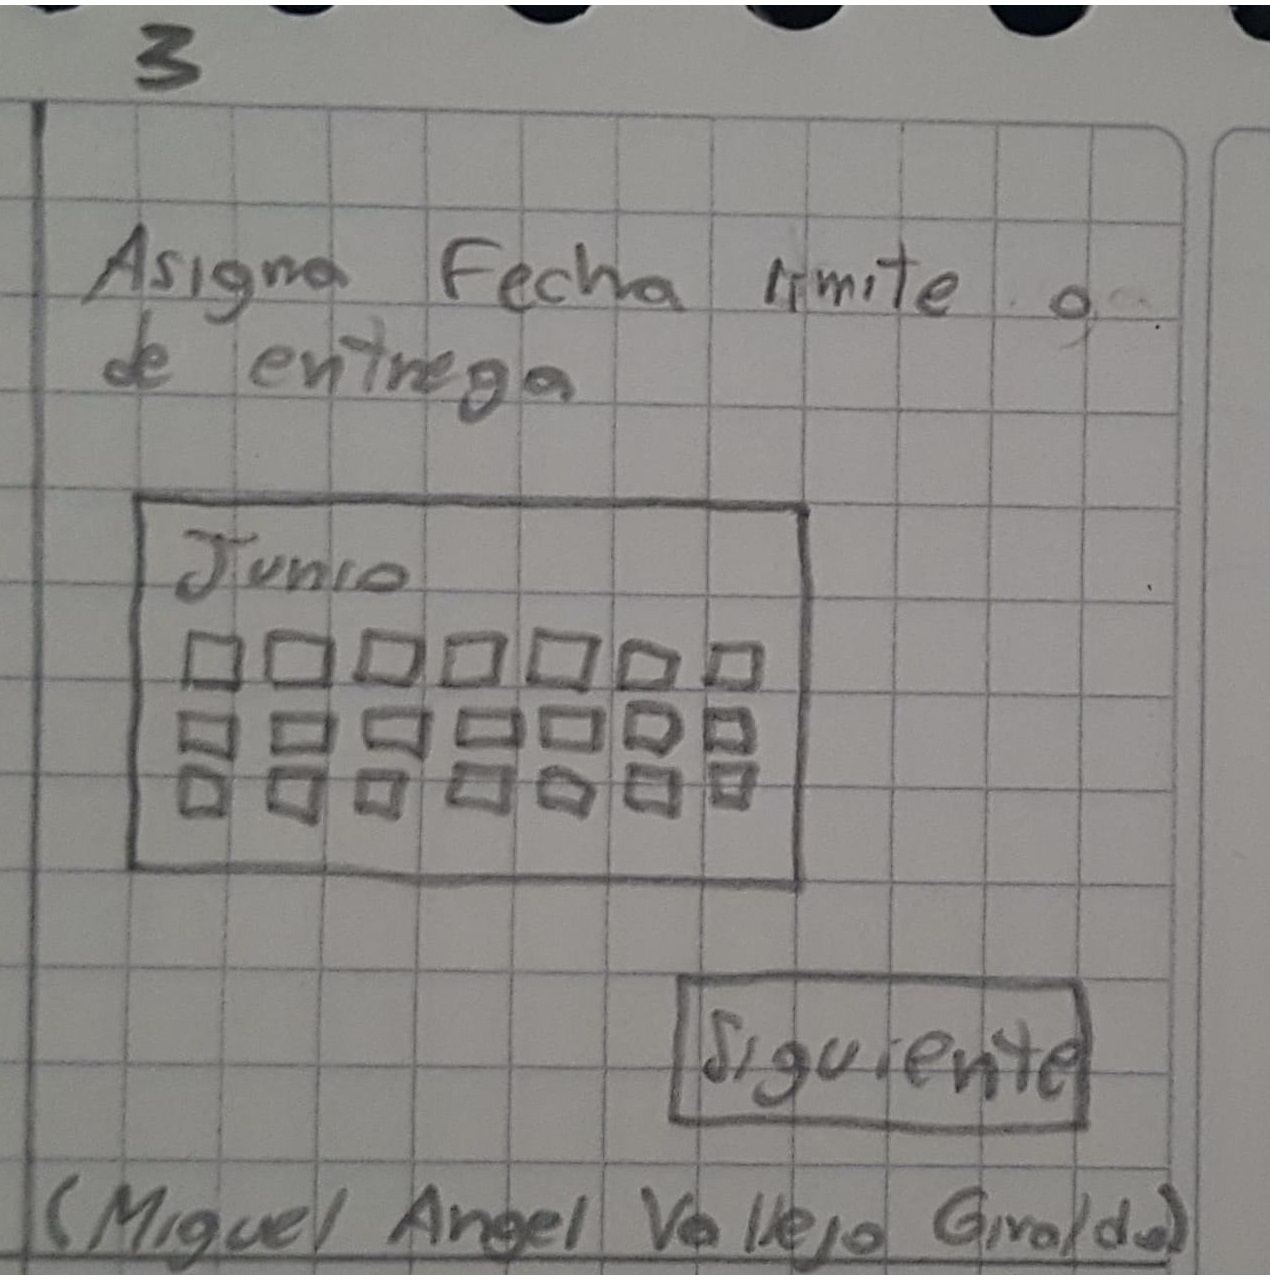 3
Asigna Fecha limite o
de entrega
Junio
Siguiente
(Miguel Angel Vallejo Giraldo)